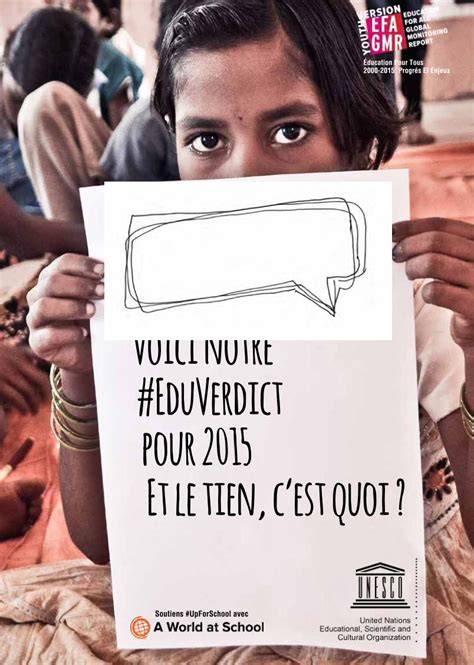 YOUTH VERSION
EFA
GMR
EDUCATION
FOR ALL
GLOBAL
MONITORING
REPORT
Éducation Pour Tous
2000-2015: Progrés Et Enjeux
VOICI NOTRE
#EDUVERDICT
POUR 2015
ET LE TIEN, C'EST QUOI ?
Soutiens #UpForSchool avec
A World at School
UNESCO
United Nations
Educational, Scientific and
Cultural Organization